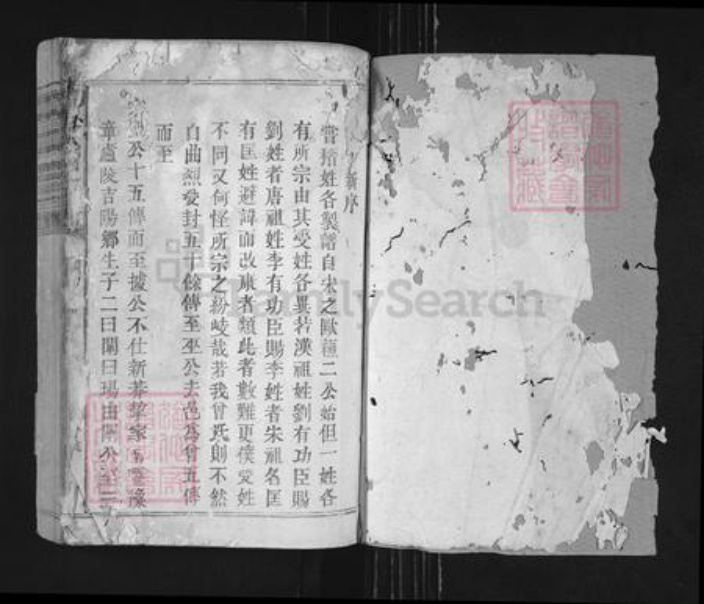 新序
嘗稽姓各製譜自宋之歐蘇二公始但一姓各
有所宗由其受姓各異若漢祖姓劉有功臣賜
劉姓者唐祖姓李有功臣賜李姓者宋祖名匡
有匡姓避諱而改康者類此者數難更僕受姓
不同又何怪所宗之紛岐哉若我曾氏則不然
自曲烈受封五十餘傳至巫公去邑為曾五傳
而至
公十五傳而至據公不仕新莽挈家豫
章廬陵吉陽鄉生子二曰闡曰瑒由闡公
FamilySearch